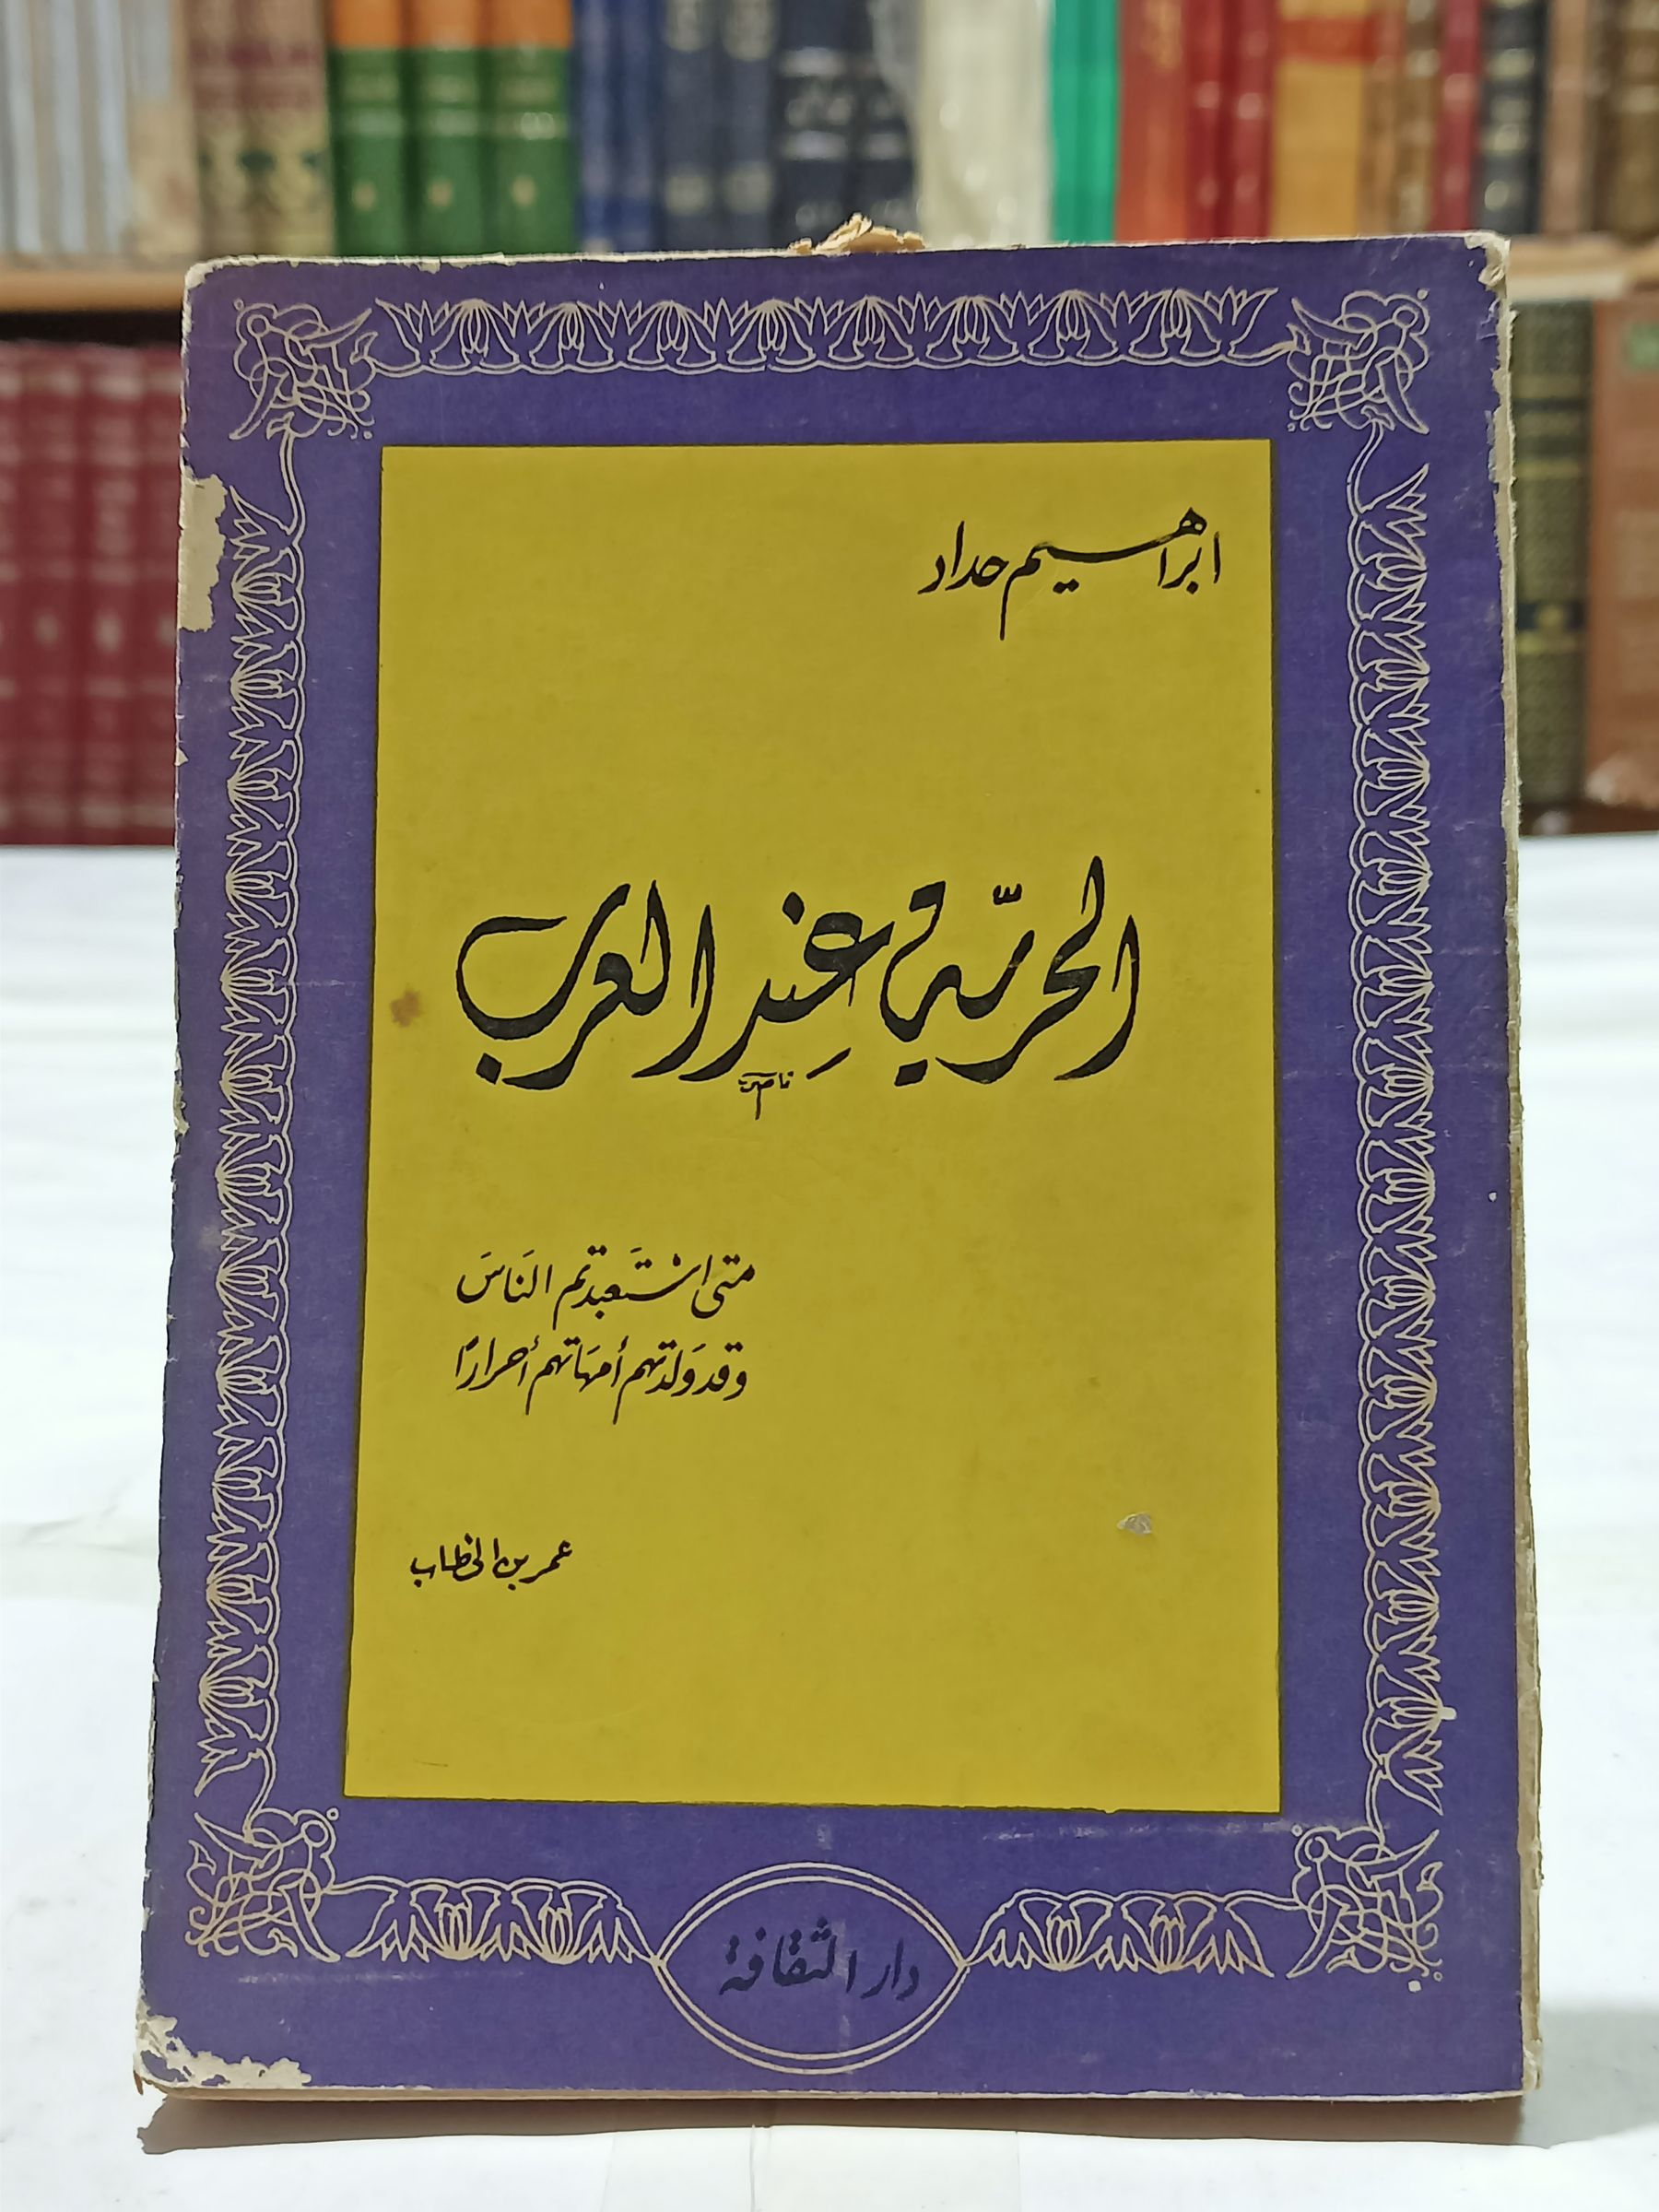 ابراهيم حداد
الحريّة عند العرب
متى استَعبدتم النَاسَ
وقد وَلدتهم أمهَاتهم أحرارًا
عمر بن الخطاب
دار الثقافة